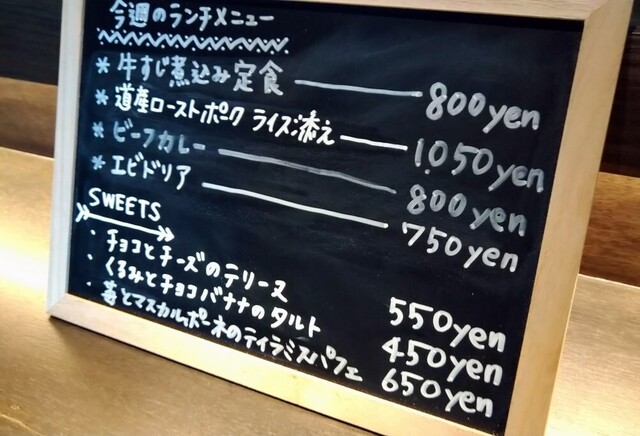 今週のランチメニュー
* 牛すじ煮込み定食 800yen
* 道産ローストポーク ライス添え 1,050yen
* ビーフカレー 800yen
* エビドリア 750yen
SWEETS
・チョコとチーズのテリーヌ 550yen
・くるみとチョコバナナのタルト 450yen
・苺とマスカルポーネのティラミスパフェ 650yen